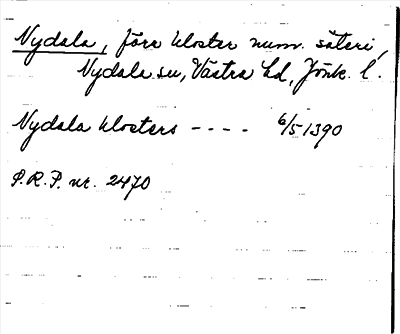 Nydala, förr kloster num. säteri,
Nydala sn, Västra hd, Jönk. l.
Nydala klosters - - - - 6/5 1390
S.R.P. nr. 2470